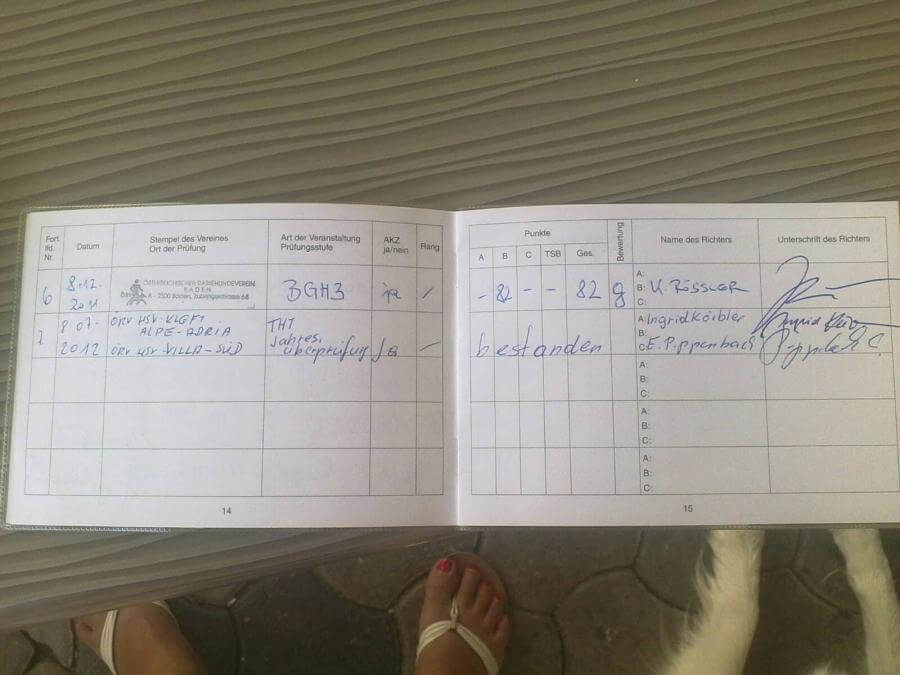 Fort
lfd.
Nr.
Datum
Stempel des Vereines
Ort der Prüfung
Art der Veranstaltung
Prüfungsstufe
AKZ
ja/nein
Rang
6
8.12.
2011
ÖSTERREICHISCHER DASHUNDEVEREIN
BADEN
A - 2500 Baden,
BGH3
ja
/
7
8.07.
2012
ÖRV HSV-KLGFT
ALPE-ADRIA
ÖRV HSV-VILLA-SÜD
THT
Jahres.
überprüfung
ja
–
14
Punkte
A
B
C
TSB
Ges.
Bewertung
Name des Richters
Unterschrift des Richters
- 82 - - 82 g
A:
B: V. RÖSSLER
C:
bestanden
A: Ingrid Köibler
B:
C: E. Pippenbach
A:
B:
C:
A:
B:
C:
A:
B:
C:
15